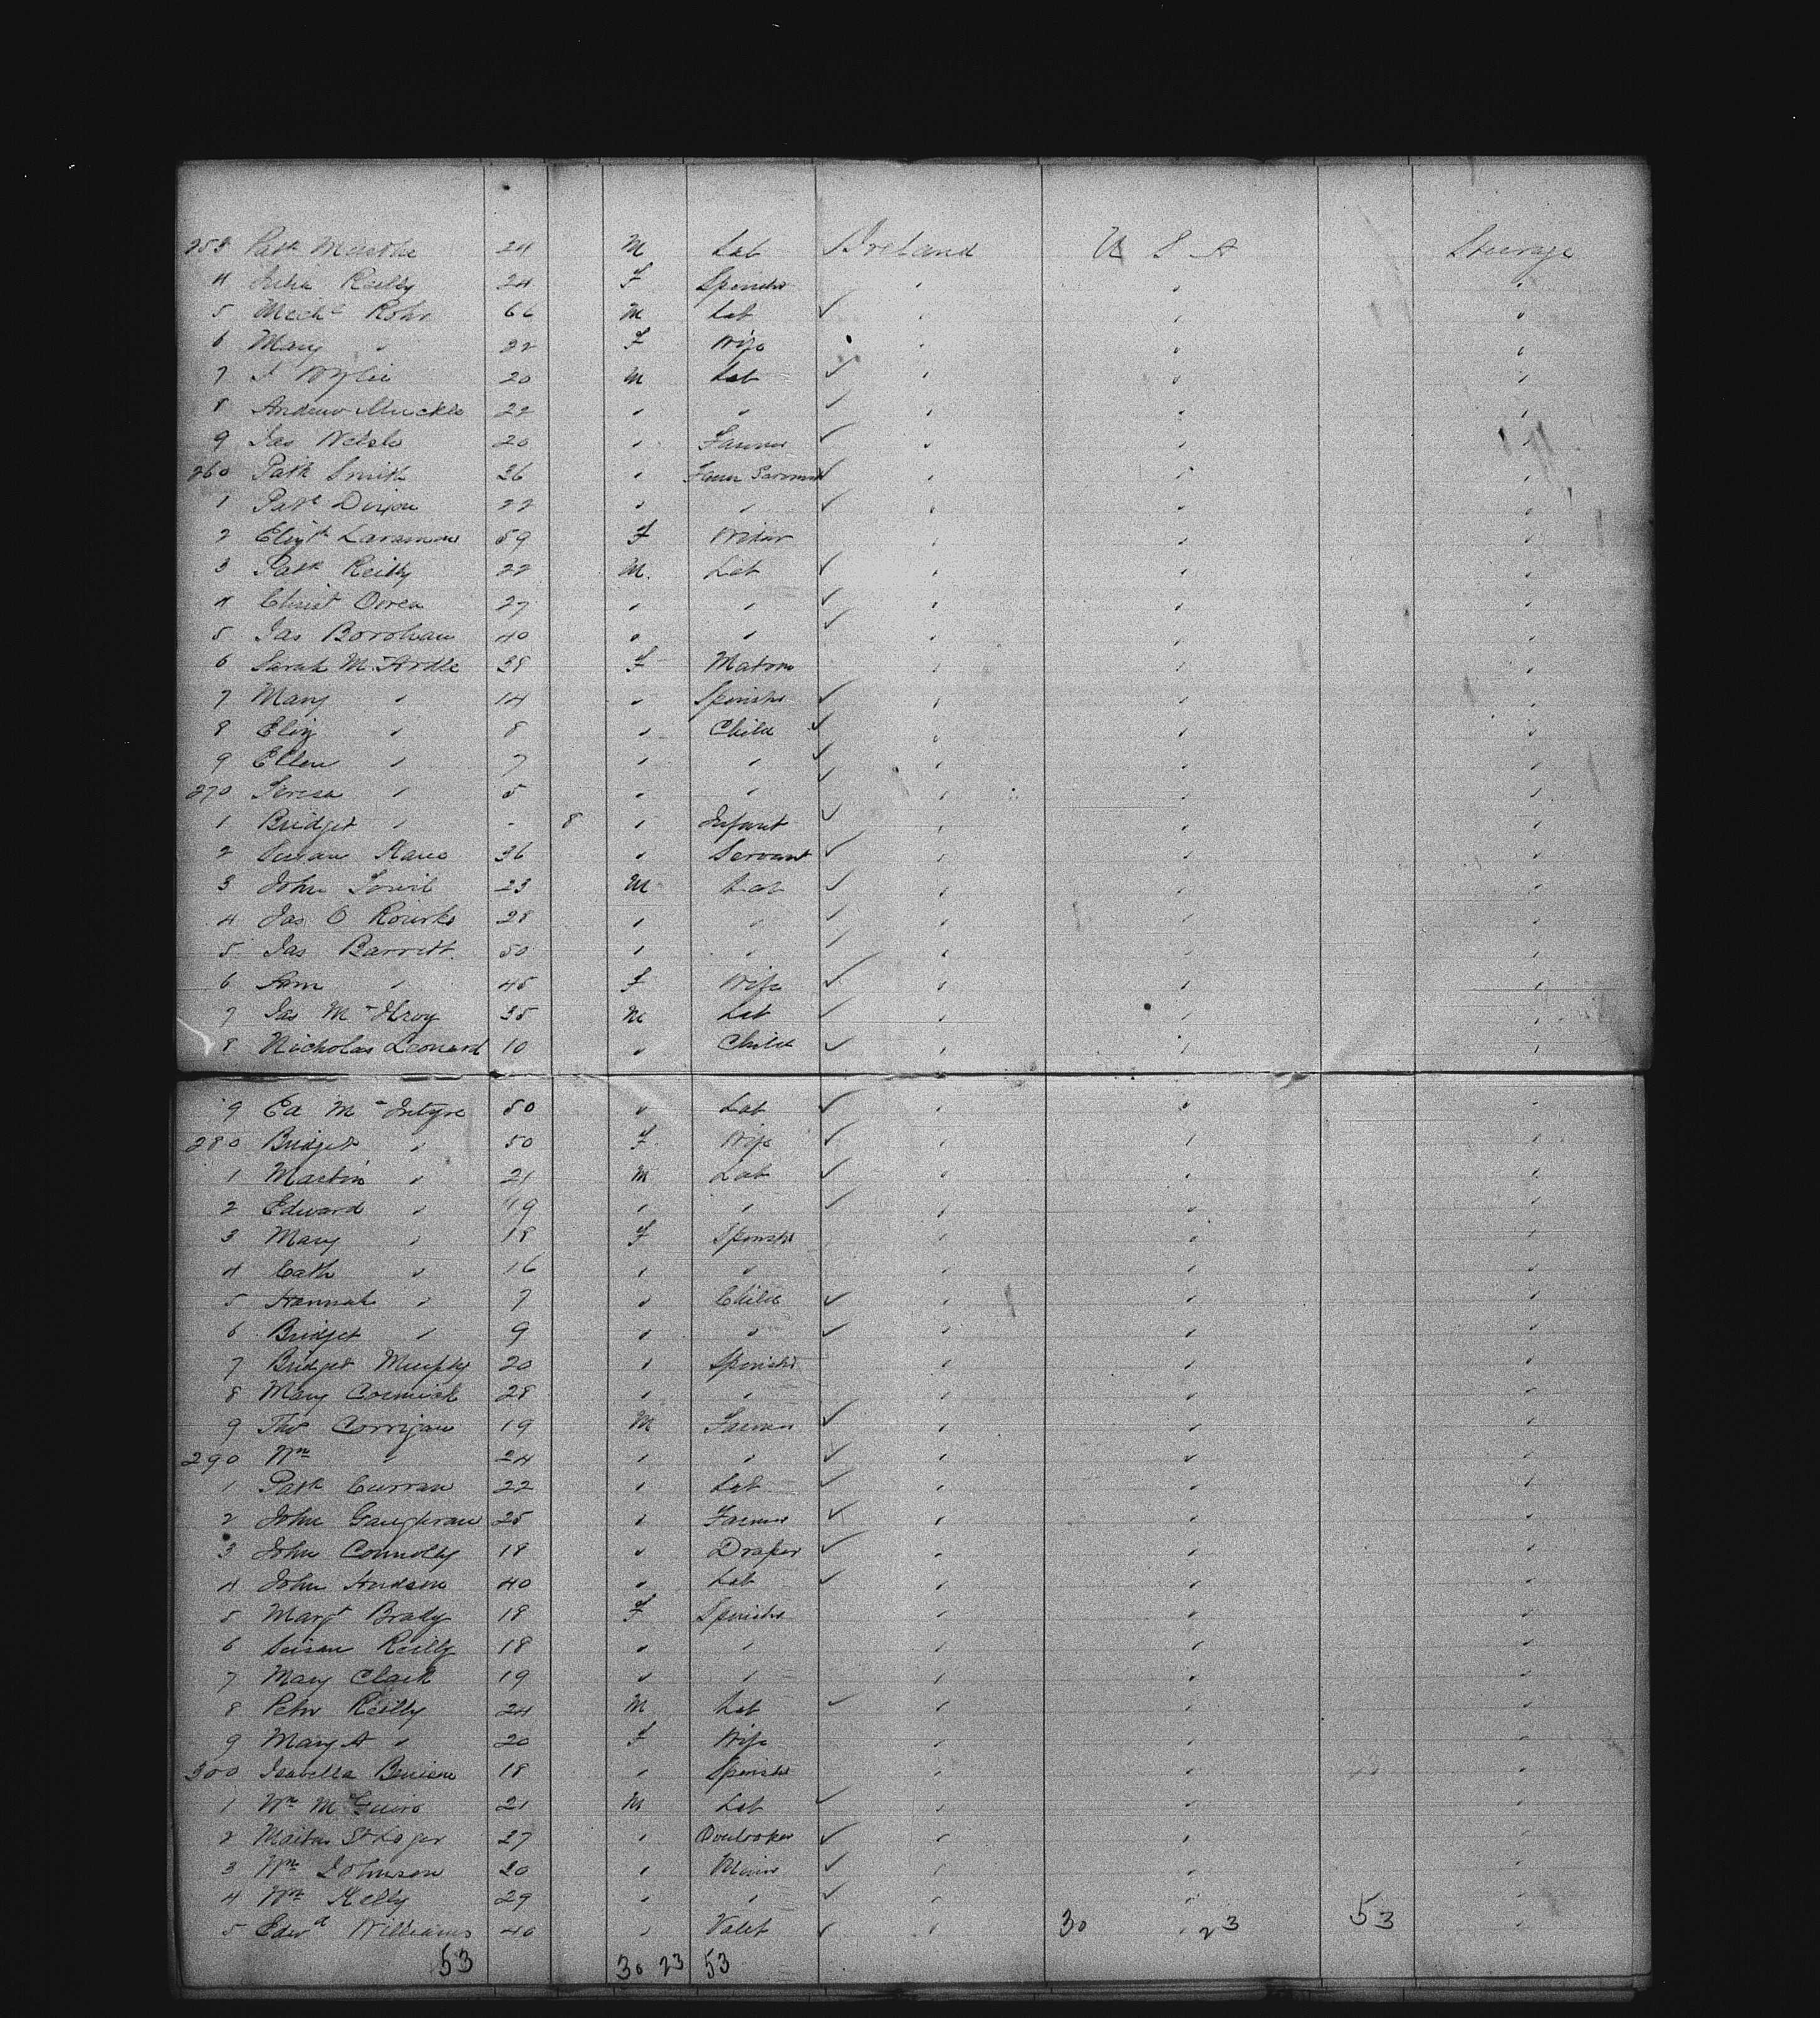 253 Patk 24 M Lab Ireland U S A Steerage
4 Julia Reilly 24 F Spinster " " "
5 Michl Rohr 66 M Lab ✓ " " "
6 Mary " 22 F Wife " " "
7 J Wylie 20 M Lab ✓ " " "
8 Andrew Muckle 22 " " ✓ " " "
9 Jas Welsh 20 " Farmer ✓ " " "
260 Patk Smith 26 " Farm Servant ✓ " " "
1 Patk Dixon 22 " " ✓ " " "
2 Elizth 59 F Widow " " "
3 Patk Reilly 22 M. Lab ✓ " " "
4 Christ 27 " " ✓ " " "
5 Jas Borohan 40 " " ✓ " " "
6 Sarah McArdle 38 F Matron " " "
7 Mary " 14 " Spinster ✓ " " "
8 Eliz " 8 " Child ✓ " " "
9 Ellen " 7 " " ✓ " " "
270 Teresa " 5 " " ✓ " " "
1 Bridget " - 8 " Infant ✓ " " "
2 Susan Kane 36 " Servant ✓ " " "
3 John 23 M Lab ✓ " " "
4 Jas O Rourke 28 " " ✓ " " "
5 Jas Barrett 50 " " ✓ " " "
6 Ann " 45 F Wife ✓ " " "
7 Jas McIlroy 35 M Lab ✓ " " "
8 Nicholas Leonard 10 " Child ✓ " " "
9 Ed McIntyre 50 " Lab ✓ " " "
280 Bridget " 50 F Wife ✓ " " "
1 Martin " 21 M Lab ✓ " " "
2 Edward " 19 " " ✓ " " "
3 Mary " 18 F Spinster " " "
4 Cath " 16 " " " " "
5 Hannah " 7 " Child ✓ " " "
6 Bridget " 9 " " ✓ " " "
7 Bridget Murphy 20 " Spinster " " "
8 Mary Cormick 28 " " " " "
9 Thos Corrigan 19 M Farmer ✓ " " "
290 Wm " 24 " " ✓ " " "
1 Patk Curran 22 " Lab ✓ " " "
2 John Gaughran 25 " Farmer ✓ " " "
3 John Connolly 18 " Draper ✓ " " "
4 John Hudson 40 " Lab ✓ " " "
5 Margt Brady 18 F Spinster " " "
6 Susan Reilly 18 " " " " "
7 Mary Clark 19 " " " " "
8 Peter Reilly 24 M Lab ✓ " " "
9 Mary A " 20 F Wife " " "
300 Isabella 18 " Spinster " " "
1 Wm McGuire 21 M Lab ✓ " " "
2 Martin St Leger 27 " Overlooker ✓ " " "
3 Wm Johnson 20 " Miner ✓ " " "
4 Wm Kelly 29 " " ✓ " " "
5 Edwd Williams 40 " Valet ✓ " 30 " 23 53 "
53 30 23 53